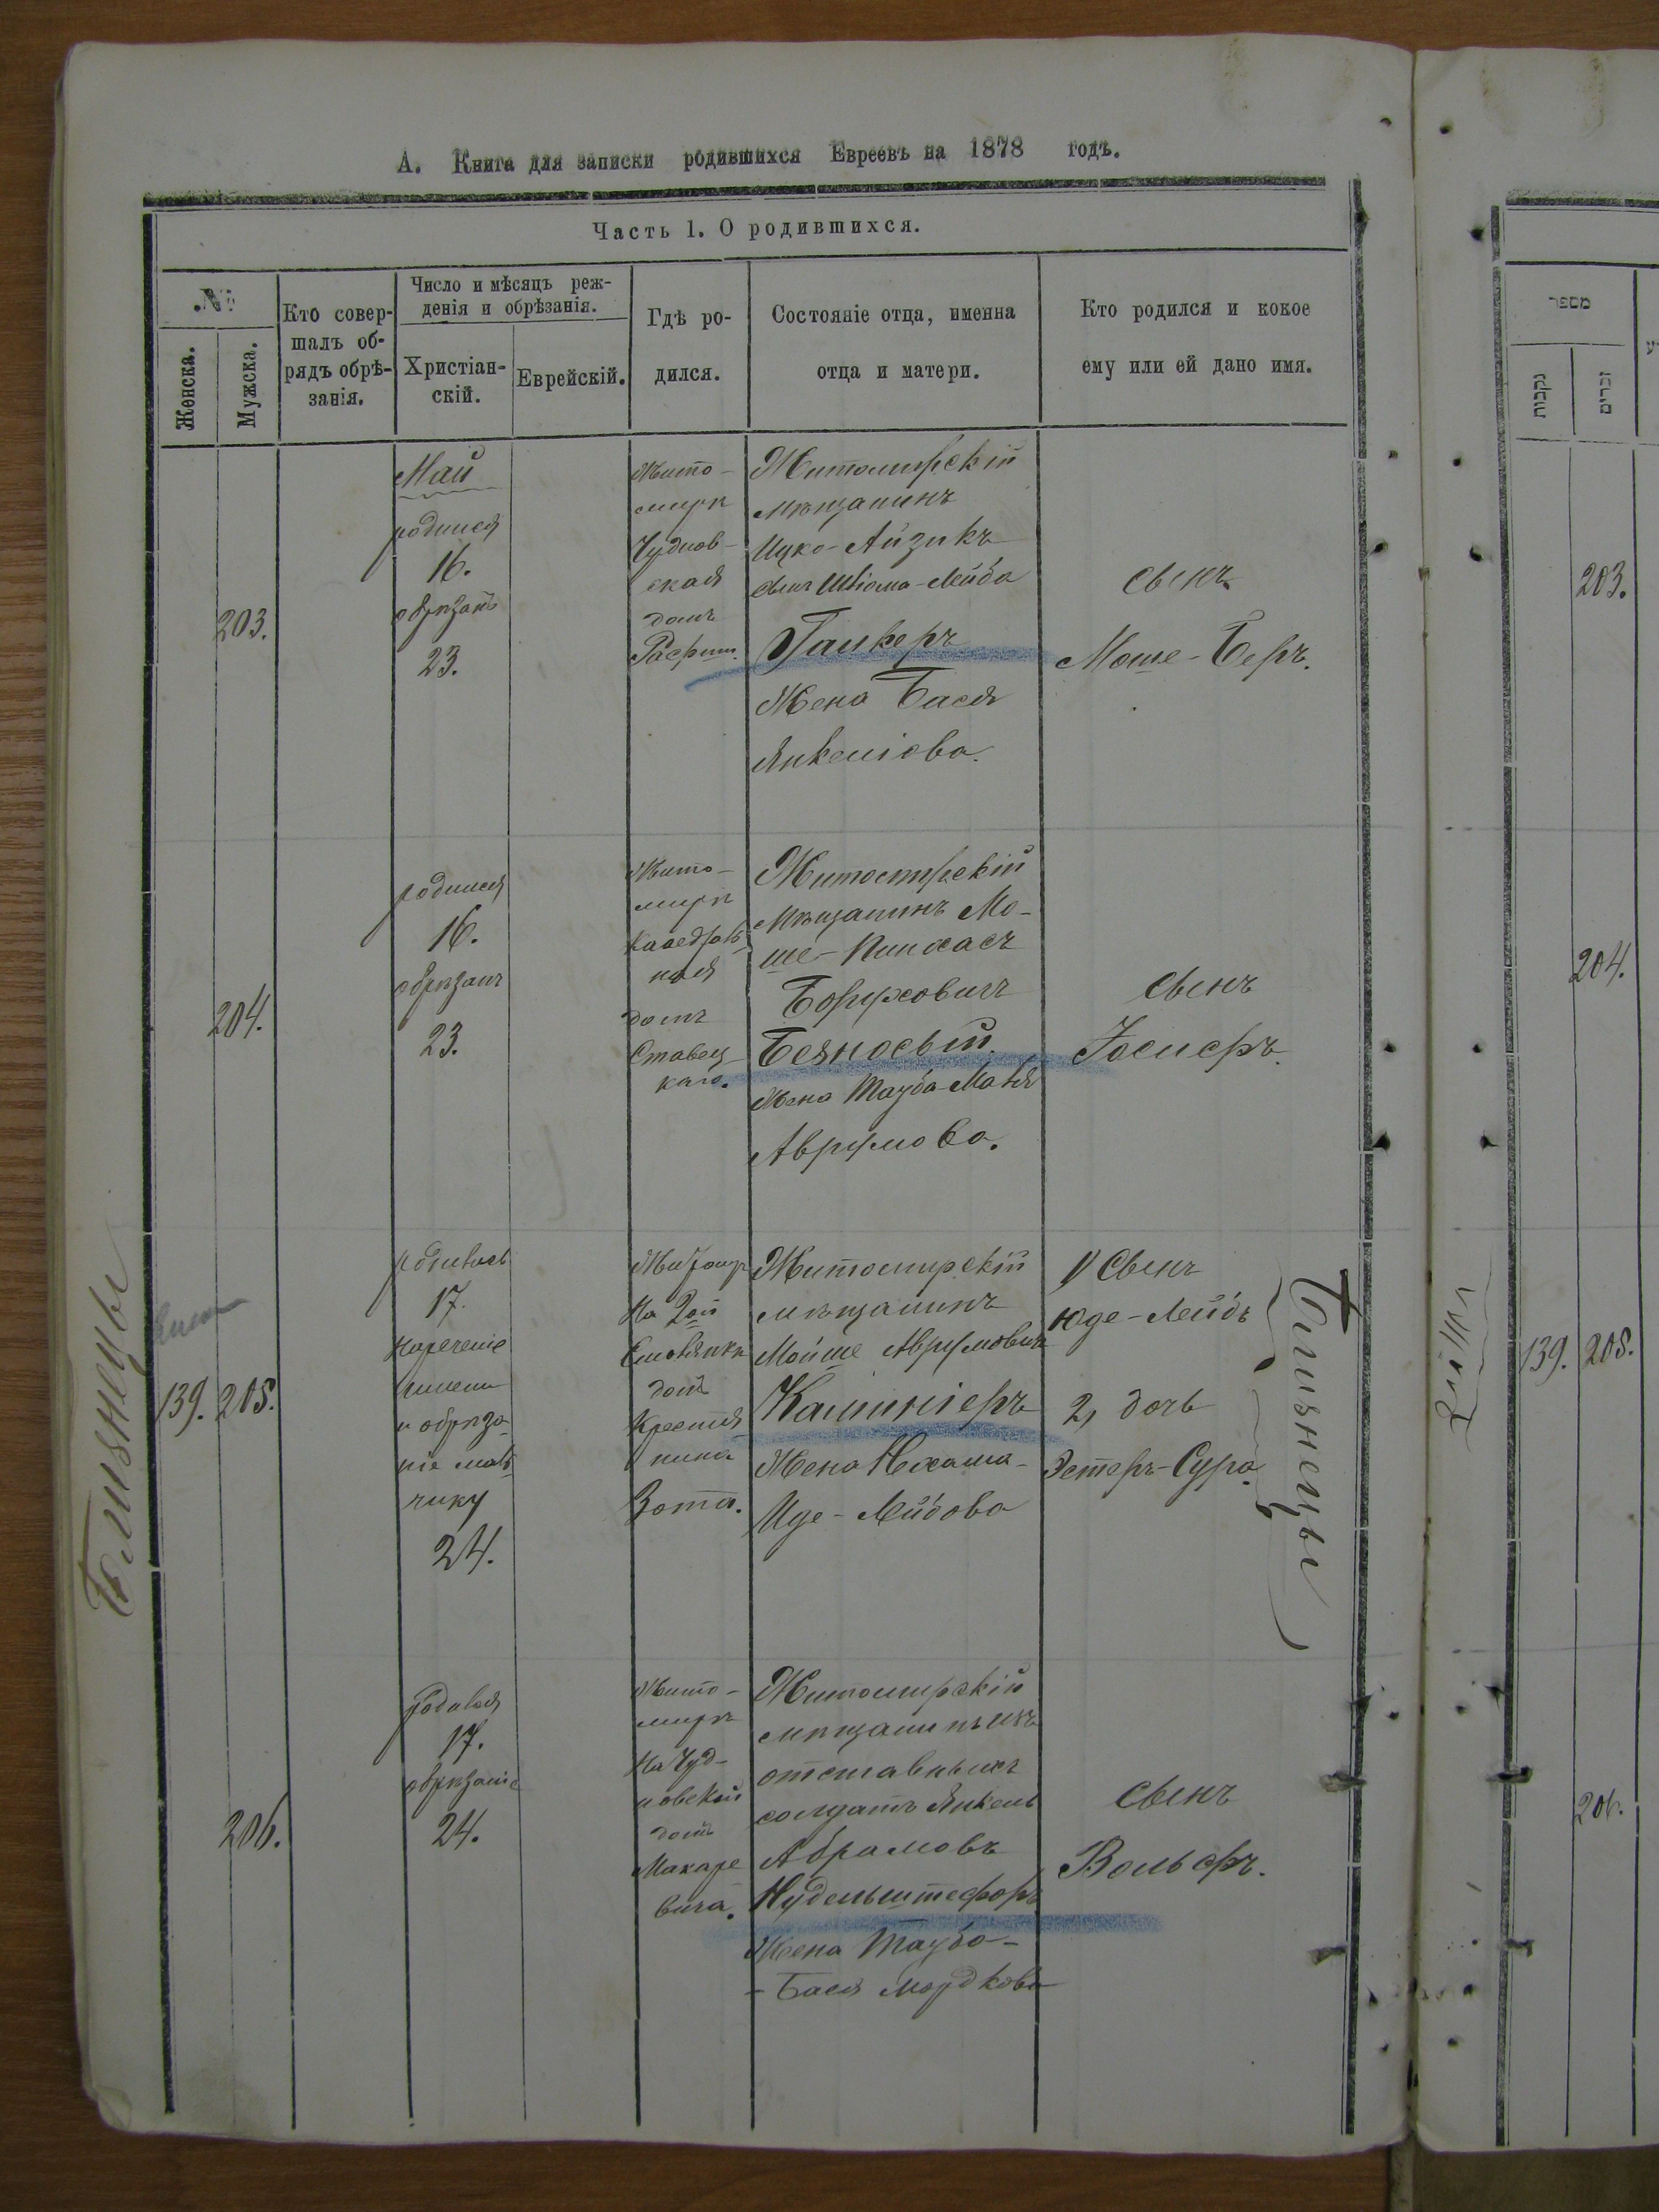 А. Книга для записки родившихся Евреевъ на 1878 годъ.
Часть 1. О родившихся.
№
Женска.
Мужска.
Кто совер-
шалъ об-
рядъ обрѣ-
занія.
Число и мѣсяцъ реж-
денія и обрѣзанія.
Христіан-
скій.
Еврейскій.
Гдѣ ро-
дился.
Состояніе отца, именна
отца и матери.
Кто родился и кокое
ему или ей дано имя.
203.
Май
родился
16.
обрѣзанъ
23.
Жито-
миръ
Чуднов-
ская
домъ
Житомирскій
мѣщанинъ
Ицко-Айзикъ
сынъ Шліома-Лейба
Галперъ
Жена Бася
Янкеліова.
сынъ
Моше-Беръ.
204.
родился
16.
обрѣзанъ
23.
Жито-
миръ
Каѳедраль-
ная
домъ
Ставец-
каго.
Житомирскій
Мѣщанинъ Мо-
ше-Пинхасъ
Борухович
Жена Тауба-Маня
Аврумова.
Сынъ
Іосифъ.
Близнецы
139. 205.
родились
17.
Нареченіе
имени
и обрѣза-
ніе маль-
чику
24.
Житомир
На 2ой
домъ
Крестья
нина
Зота.
Житомирскій
мѣщанинъ
Мойше Аврумовичъ
Жена Нехама-
Иде-Лейбова
1) Сынъ
Юде-Лейбъ
2, дочь
Эстеръ-Сура.
Близнецы
206.
Родился
17.
обрѣзаніе
24.
Жито-
миръ
На Чуд-
новской
домъ
Макаре
вича.
Житомирскій
мѣщанинъ изъ
отставныхъ
солдатъ Янкель
Абрамовъ
Нудельштеферъ
Жена Тауба-
-Бася Мордкова
Сынъ
Вольфъ.
מספר
נקבות
זכרים
203.
204.
139. 205.
206.